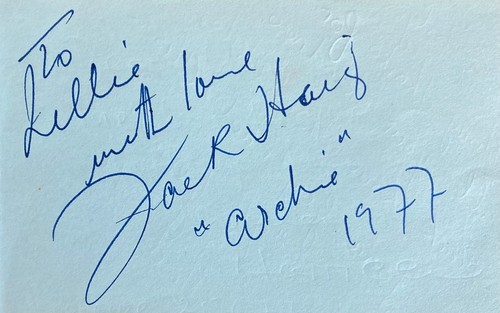 To
Lillie
with love
Jack Haig
"Archie"
1977